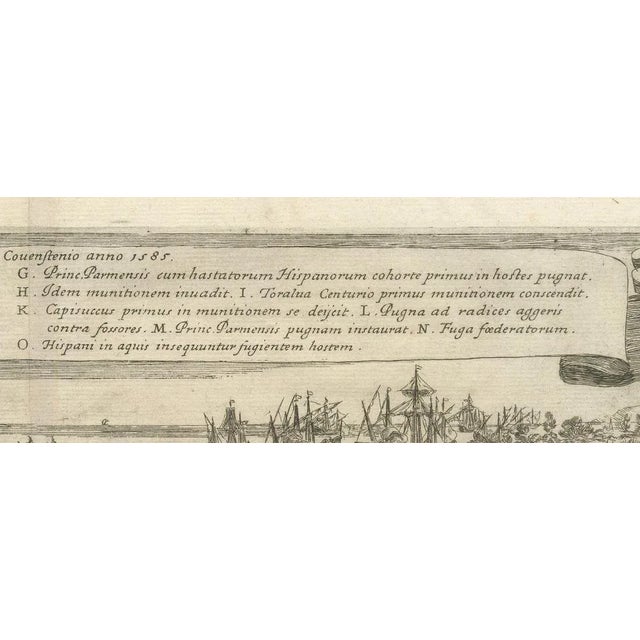 Couenſtenio anno 1585.
G. Princ. Parmensis cum hastatorum Hispanorum cohorte primus in hoſtes pugnat.
H. Idem munitionem inuadit. I. Toralua Centurio primus munitionem conscendit.
K. Capisuccus primus in munitionem se deijcit. L. Pugna ad radices aggeris
contra fossores. M. Princ. Parmensis pugnam instaurat. N. Fuga fœderatorum.
O. Hispani in aquis insequuntur fugientem hostem.